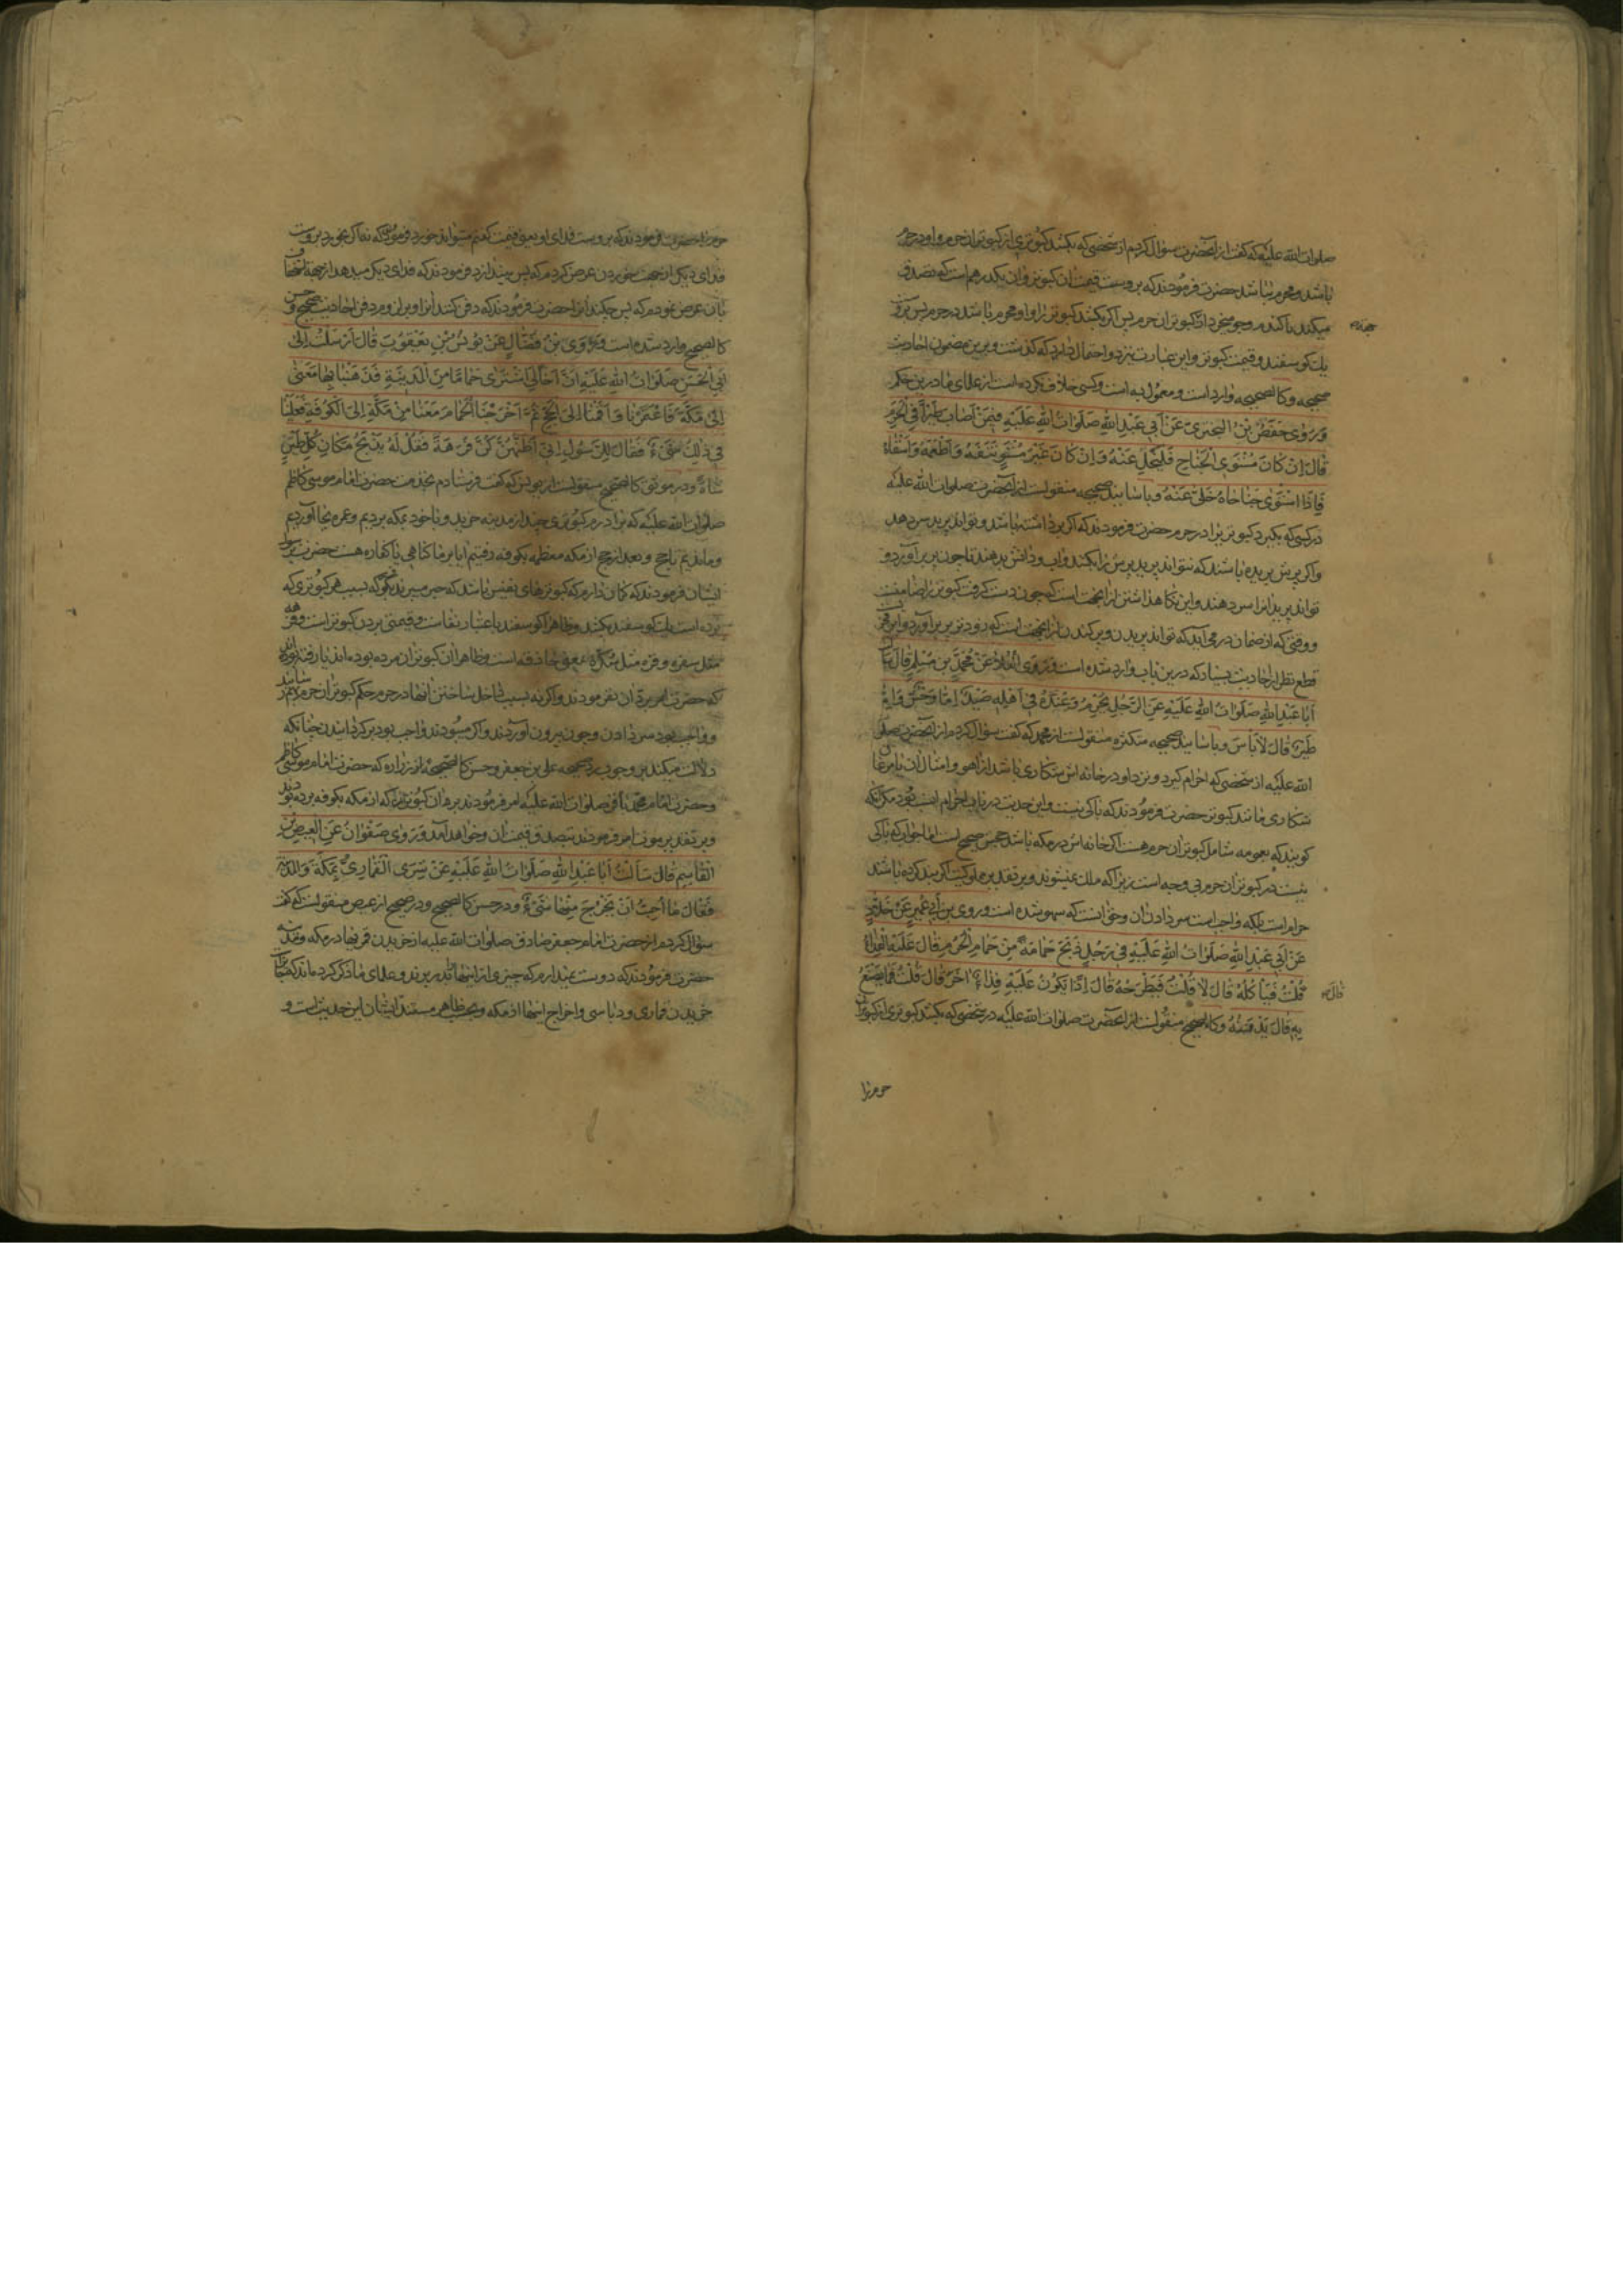 صلوات الله علیه که گفت از آنحضرت سؤال کردم از شخصی که بکشد کبوتری از کبوتران حرم را و او در حرم
باشد و محرم نباشد حضرت فرمودند که بر اوست قیمت آن کبوتر و آن یکدرهم است که تصدق
میکند یا گندم و جو میخرد از کبوتران حرم پس اگر بکشد کبوتر را و او محرم باشد در حرم پس بر اوست
یک کوسفند و قیمت کبوتر و این عبارت نیز دو احتمال دارد که گذشت و برین مضمون احادیث
صحیحه و کالصحیحه وارد است و معمول به است و کسی خلاف نکرده است از علمای ما درین حکم
وَرَوٰی حَفْصُ بْنُ الْبَخْتَرِیِّ عَنْ اَبی عَبْدِ اللهِ صَلَوٰاتُ اللهِ عَلَیْهِ فیمَنْ اَصٰابَ طَیْرًا فِی الْحَرَمِ
قٰالَ اِنْ کٰانَ مُسْتَوِیَ الْجَنٰاحِ فَلْیُخَلِّ عَنْهُ وَاِنْ کٰانَ غَیْرَ مُسْتَوٍ نَتَفَهُ وَاَطْعَمَهُ وَاَسْقٰاهُ
فَاِذَا اسْتَوٰی جَنٰاحٰاهُ خَلّٰی عَنْهُ و باسانید صحیحه منقولست از آنحضرت صلوات الله علیه
در کسی که بگیرد کبوتر را در حرم حضرت فرمودند که اگر پر داشته باشد و تواند پرید سر دهد
و اگر پرش بریده باشند که نتواند پرید پرش را بکند و آب و دانش بدهند تا چون پر برآورد و
تواند پرید انرا سر دهند و این نکاهداشتن از آنجهت است که چون دست گرفت کبوتر را ضامنست
و وقتی که از ضمان در می آید که تواند پریدن و پر کندن از آنجهت است که زودتر پر برآورد و این
قطع نظر از احادیث بسیار که درین باب وارد شده است وَرَوَی الْعَلٰاءُ عَنْ مُحَمَّدِ بْنِ مُسْلِمٍ قٰالَ سَاَلْتُ
اَبٰا عَبْدِ اللهِ صَلَوٰاتُ اللهِ عَلَیْهِ عَنِ الرَّجُلِ یُحْرِمُ وَعِنْدَهُ فی اَهْلِهِ صَیْدٌ اِمّٰا وَحْشٌ وَاِمّٰا
طَیْرٌ قٰالَ لٰا بَاْسَ و باسانید صحیحه متکثره منقولست از محمد که گفت سؤال کردم از آنحضرت صلوات
الله علیه از شخصی که احرام گیرد و نزد او در خانه اش شکاری باشد از آهو و امثال آن یا مرغان
شکاری مانند کبوتر حضرت فرمودند که باکی نیست و این حدیث در باب احرام
کویند که بعمومه شامل کبوتران حرم هست اگر خانه اش در مکه باشد صحیح است اما جواب که باکی
نیست در کبوتران حرم بی وجه است زیرا که ملک نمیشوند و بر تقدیر ملوکیت اگر صید کرده باشد
حرام است بلکه واجب است سر دادن آن و حق آنست که سهو شده است و روی بن اَبی عُمَیْرٍ عَنْ خَلّٰادٍ
عَنْ اَبی عَبْدِ اللهِ صَلَوٰاتُ اللهِ عَلَیْهِ فی رَجُلٍ ذَبَحَ حَمٰامَةً مِنْ حَمٰامِ الْحَرَمِ قٰالَ عَلَیْهِ الْفِدٰاءُ
قُلْتُ فَیَاْکُلُهُ قٰالَ لٰا قُلْتُ فَیَطْرَحُهُ قٰالَ اِذًا یَکُونُ عَلَیْهِ فِدٰاءٌ اٰخَرُ قٰالَ قُلْتُ فَمٰا یَصْنَعُ
بِهِ قٰالَ یَدْفِنُهُ و کالصحیح منقولست از آنحضرت صلوات الله علیه در شخصی که بکشد کبوتری از کبوتران
قال
حرم را
حرم را حضرت فرمودند که بر اوست فدای او یعنی قیمت گفتم میتواند خورد فرمودند که نه اگر بخورد بر اوست
فدای دیگر از جهت خوردن عرض کردم که پس بیندازد فرمودند که فدای دیگر میدهد از جهة استخفاف
بآن عرض نمودم که پس چکند آنرا حضرت فرمودند که دفن کند آنرا و برین و مرد فن احادیث صحیح و حسن
کالصحیح وارد شده است وَرَوَی بْنُ فَضّٰالٍ عَنْ یُونُسَ بْنِ یَعْقُوبَ قٰالَ اَرْسَلْتُ اِلٰی
اَبِی الْحَسَنِ صَلَوٰاتُ اللهِ عَلَیْهِ اِنَّ اَخًا لِیَ اشْتَرٰی حَمٰامًا مِنَ الْمَدینَةِ فَذَهَبْنٰا بِهٰا مَعَنٰا
اِلٰی مَکَّةَ فَاعْتَمَرْنٰا وَ اَقَمْنٰا اِلَی الْحَجِّ ثُمَّ اَخْرَجْنَا الْحَمٰامَ مَعَنٰا مِنْ مَکَّةَ اِلَی الْکُوفَةِ فَعَلَیْنٰا
فی ذٰلِکَ شَیْءٌ فَقٰالَ لِلرَّسُولِ اِنّی اَظُنُّهُنَّ کُنَّ فُرْهَةً فَقُلْ لَهُ یَذْبَحُ مَکٰانَ کُلِّ طَیْرٍ
شٰاةً و در موثق کالصحیح منقولست از یونس که گفت فرستادم بخدمت حضرت امام موسی کاظم
صلوات الله علیه که برادرم کبوتری چند از مدینه خرید و با خود بمکه بردیم و عمره بجا آوردیم
و ماندیم تا حج و بعد از حج از مکه معظمه بکوفه رفتیم آیا بر ما کناهی یا کفاره هست حضرت برسول
ایشان فرمودند که کمان دارم که کبوترهای نفیس باشد که خبر میبرند بگو که بسبب هر کبوتری که
برده است یک کوسفند بکشد و ظاهرا کوسفند باعتبار نفاست و قیمتی بودن کبوتر است و فرهه
مثل سفره و فره مثل سکره بمعنی حاذقه است و ظاهرا آن کبوتران مرده بوده اند یا رفته بوده اند
که حضرت امر برد آن نفرمودند و اگر نه بسبب داخل ساختن آنها در حرم حکم کبوتران حرم بهم رسانید
و واجب بود سر دادن و چون بیرون آوردند و اگر میبودند واجب بود برگردانیدن چنانکه
دلالت میکند بر وجوب رد صحیحه علی بن جعفر و حسن کالصحیحه از زراره که حضرت امام موسی کاظم
و حضرت امام محمد باقر صلوات الله علیه امر فرمودند برد آن کبوتران که از مکه بکوفه برده بودند
و بر تقدیر موت امر فرمودند بتصدق قیمت آن و خواهد آمد وَرَوٰی صَفْوٰانُ عَنِ الْعیصِ بْنِ
الْقٰاسِمِ قٰالَ سَاَلْتُ اَبٰا عَبْدِ اللهِ صَلَوٰاتُ اللهِ عَلَیْهِ عَنْ شِرَی الْقَمٰارِیِّ بِمَکَّةَ وَالْمَدینَةِ
فَقٰالَ مٰا اُحِبُّ اَنْ یُخْرَجَ مِنْهٰا شَیْءٌ و در حسن کالصحیح و در صحیح از عیص منقولست که گفت
سؤال کردم از حضرت امام جعفر صادق صلوات الله علیه از خریدن قمریها در مکه و مدینه
حضرت فرمودند که دوست نمیدارم که چیزی از اینها بدر برند و علمای ما ذکر کرده اند کراهت
خریدن قماری و دباسی و اخراج اینها از مکه و بحسب ظاهر مستند ایشان این حدیث است و